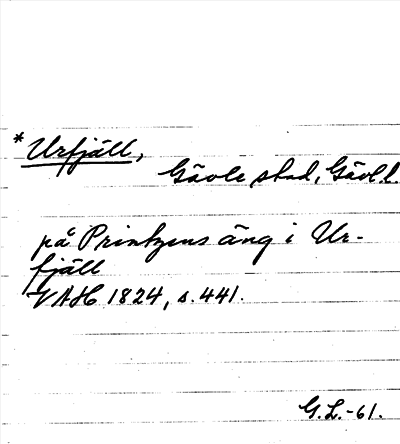 * Urfjäll,
Gävle stad, Gävl. l.
på Printzens äng i Ur-
fjäll
VAH 1824, s. 441.
G.L.-61.